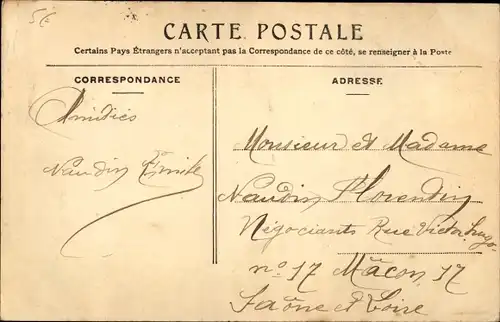 5€
CARTE POSTALE
Certains Pays Étrangers n'acceptant pas la Correspondance de ce côté, se renseigner à la Poste
CORRESPONDANCE
Amitiés
Naudin Emile
ADRESSE
Monsieur et Madame
Naudin Florendin
Négociants Rue Victor hugo
n° 17 Mâcon 17
Saône et Loire